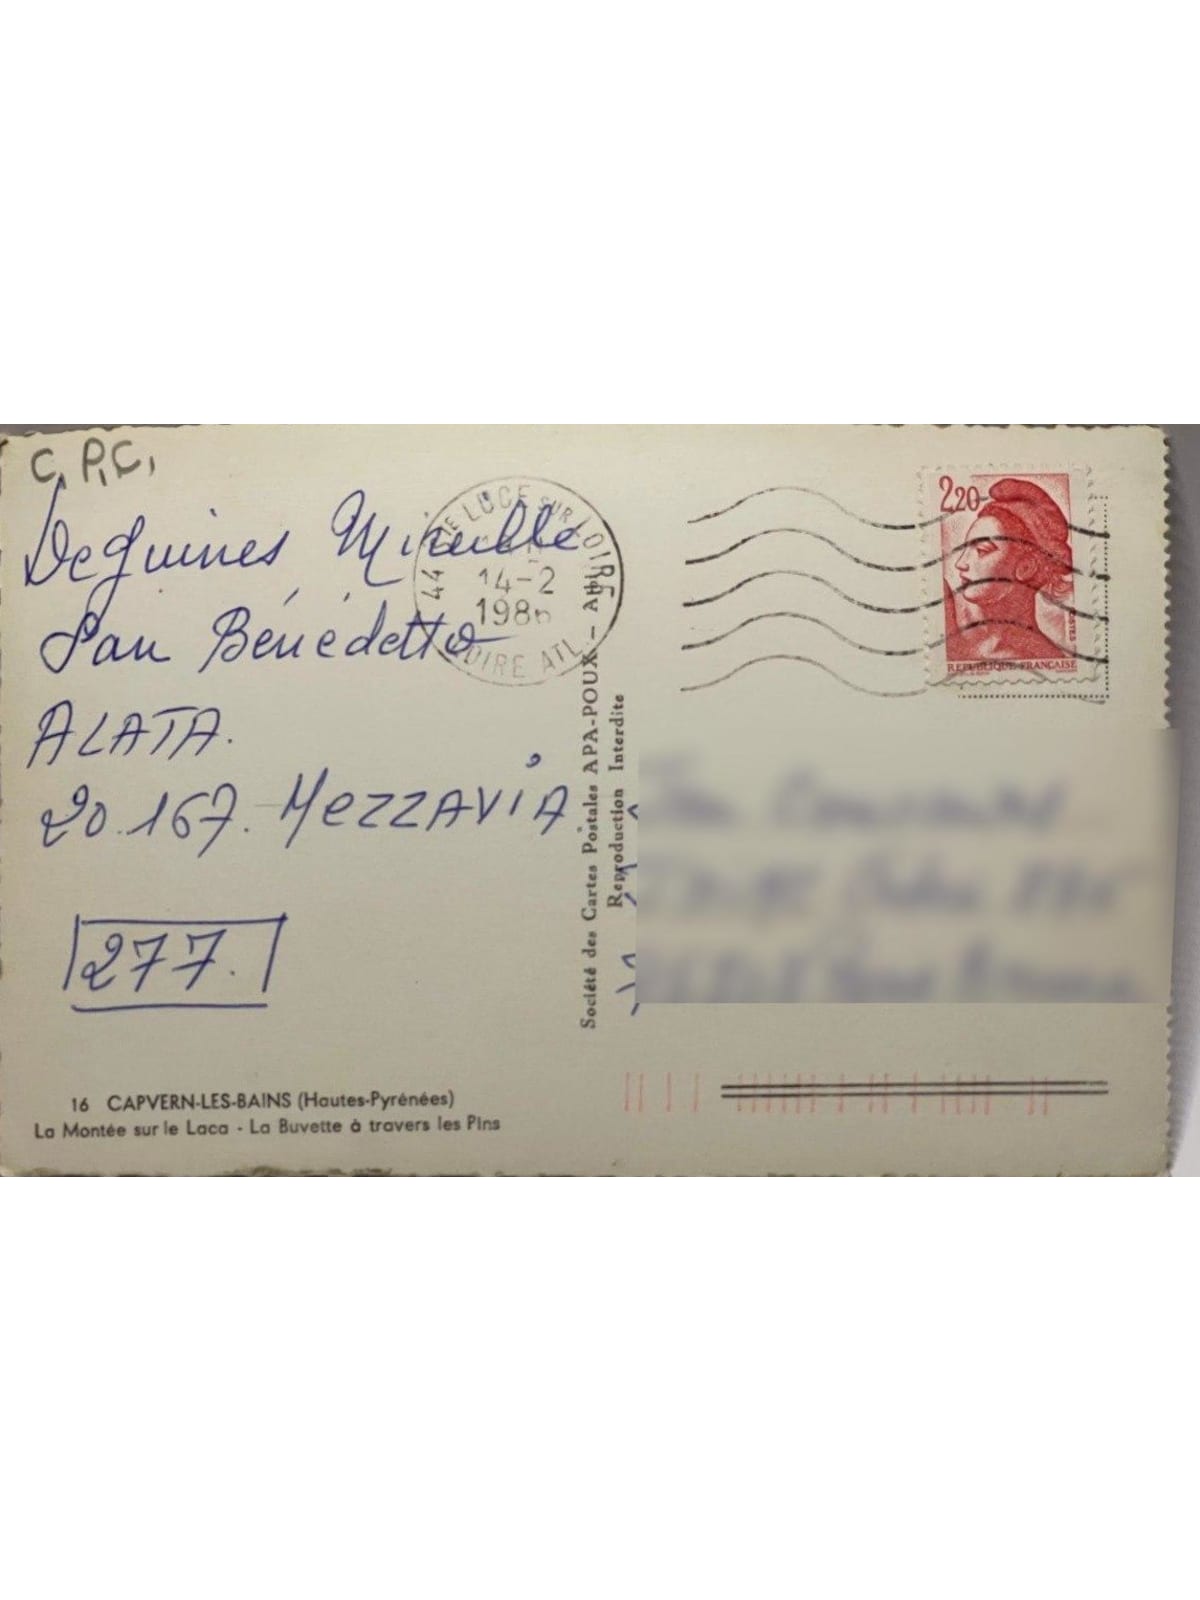 C.P.C.
Deguines Mireille
San Bénédetto
ALATA.
20.167. MEZZAVIA
277.
16 CAPVERN-LES-BAINS (Hautes-Pyrénées)
La Montée sur le Laca - La Buvette à travers les Pins
44 STE LUCE SUR LOIRE
14-2
1986
LOIRE ATL
Société des Cartes Postales APA-POUX - Albi
Reproduction Interdite
2,20
POSTES
REPUBLIQUE FRANÇAISE